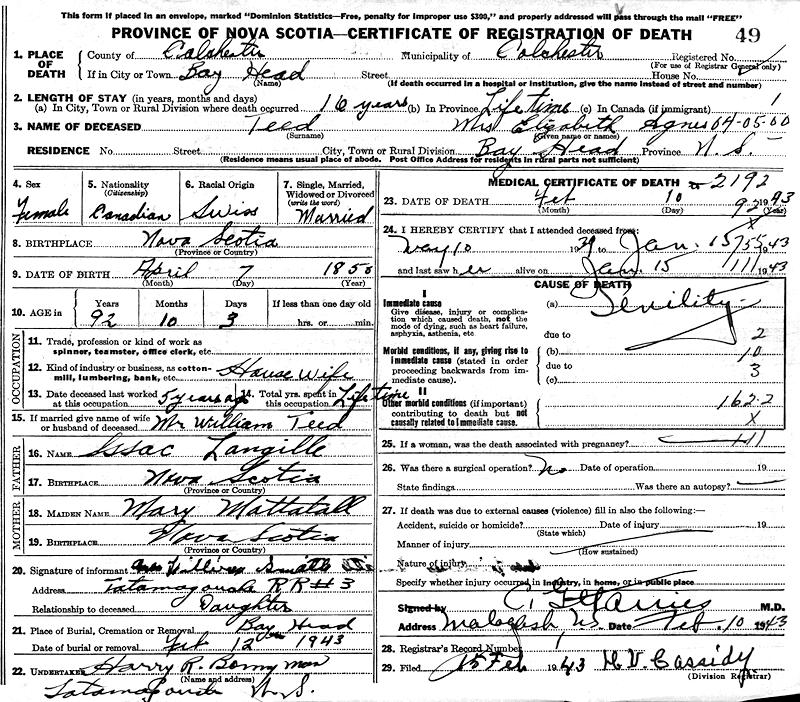 This form if placed in an envelope, marked "Dominion Statistics—Free, penalty for improper use $300," and properly addressed will pass through the mail "FREE"
PROVINCE OF NOVA SCOTIA—CERTIFICATE OF REGISTRATION OF DEATH 49
1. PLACE OF DEATH County of Colchester Municipality of Colchester Registered No.
(For use of Registrar General only)
If in City or Town Bay Head Street House No.
(Name) (If death occurred in a hospital or institution, give the name instead of street and number)
2. LENGTH OF STAY (in years, months and days)
(a) In City, Town or Rural Division where death occurred 16 years (b) In Province Lifetime (c) In Canada (if immigrant) 1
3. NAME OF DECEASED Teed Mrs Elizabeth Agnes 04-05-00
(Surname) (Given name or names)
RESIDENCE No. Street City, Town or Rural Division Bay Head Province N.S.
(Residence means usual place of abode. Post Office Address for residents in rural parts not sufficient)
4. Sex Female
5. Nationality (Citizenship) Canadian
6. Racial Origin Swiss
7. Single, Married, Widowed or Divorced (write the word) Married
8. BIRTHPLACE Nova Scotia
(Province or Country)
9. DATE OF BIRTH April 7 1850
(Month) (Day) (Year)
10. AGE in Years 92 Months 10 Days 3 If less than one day old hrs. or min.
OCCUPATION
11. Trade, profession or kind of work as spinner, teamster, office clerk, etc.
12. Kind of industry or business, as cotton-mill, lumbering, bank, etc. House Wife
13. Date deceased last worked at this occupation 5 years ago
14. Total yrs. spent in this occupation Lifetime
15. If married give name of wife or husband of deceased Mr William Teed
FATHER
16. NAME Issac Langille
17. BIRTHPLACE Nova Scotia
(Province or Country)
MOTHER
18. MAIDEN NAME Mary Mattatall
19. BIRTHPLACE Nova Scotia
(Province or Country)
20. Signature of informant
Address Tatamagouche RR#3
Relationship to deceased Daughter
21. Place of Burial, Cremation or Removal Bay Head
Date of burial or removal Feb 12th 1943
22. UNDERTAKER Harry R. Bonyman
(Name and address)
Tatamagouche N.S.
MEDICAL CERTIFICATE OF DEATH 2192
23. DATE OF DEATH Feb 10 1943
(Month) (Day) 92 (Year)
24. I HEREBY CERTIFY that I attended deceased from: X
May 10 19 Jan. 15 1943
and last saw her alive on Jan. 15 1943
CAUSE OF DEATH
I
Immediate cause
Give disease, injury or complication which caused death, not the mode of dying, such as heart failure, asphyxia, asthenia, etc
(a) Senility
due to 2
Morbid conditions, if any, giving rise to immediate cause (stated in order proceeding backwards from immediate cause).
(b) 10
due to 3
(c)
II
Other morbid conditions (if important) contributing to death but not causally related to immediate cause.
162.2
X
25. If a woman, was the death associated with pregnancy?
26. Was there a surgical operation? No Date of operation 19
State findings Was there an autopsy?
27. If death was due to external causes (violence) fill in also the following:—
Accident, suicide or homicide? Date of injury 19
(State which)
Manner of injury
(How sustained)
Nature of injury
Specify whether injury occurred in industry, in home, or in public place
Signed by M.D.
Address Malagash N.S. Date Feb. 10 1943
28. Registrar's Record Number 1
29. Filed 15 Feb 1943 H V Cassidy
(Division Registrar)